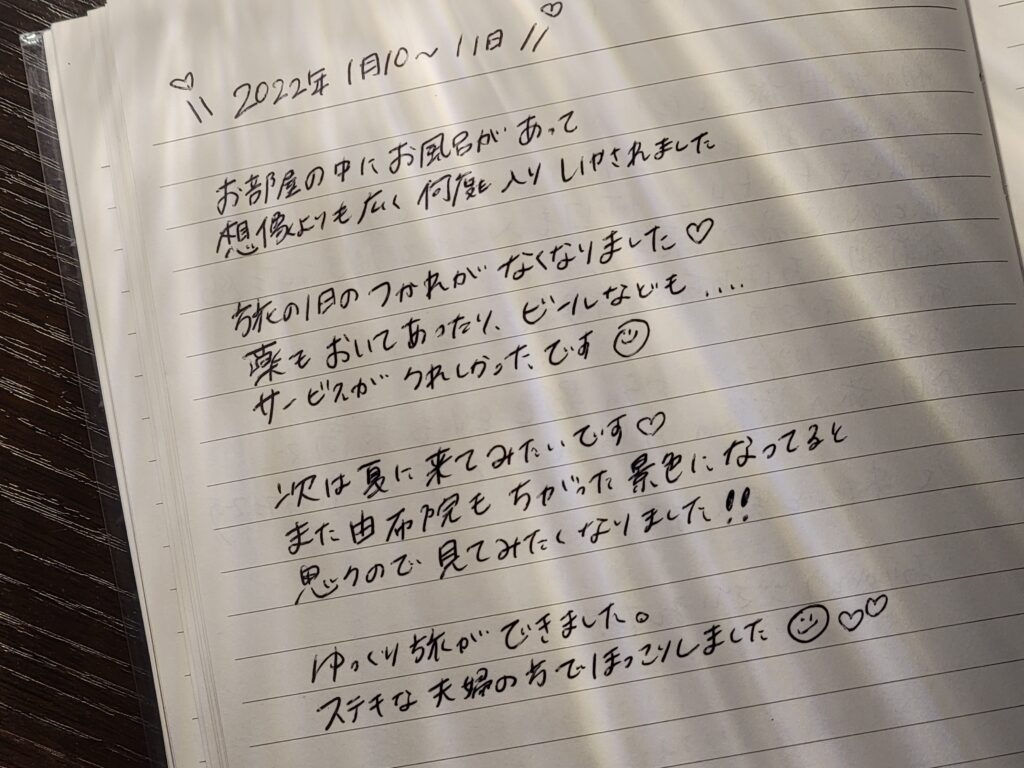 ♡ \\ 2022年 1月10~11日 // ♡
お部屋の中にお風呂があって
想像よりも広く何度も入りいやされました
旅の1日のつかれがなくなりました♡
薬もおいてあったり、ビールなども....
サービスがうれしかったです☺
次は夏に来てみたいです♡
また由布院もちがった景色になってると
思うので見てみたくなりました!!
ゆっくり旅ができました。
ステキな夫婦の方でほっこりしました☺♡♡